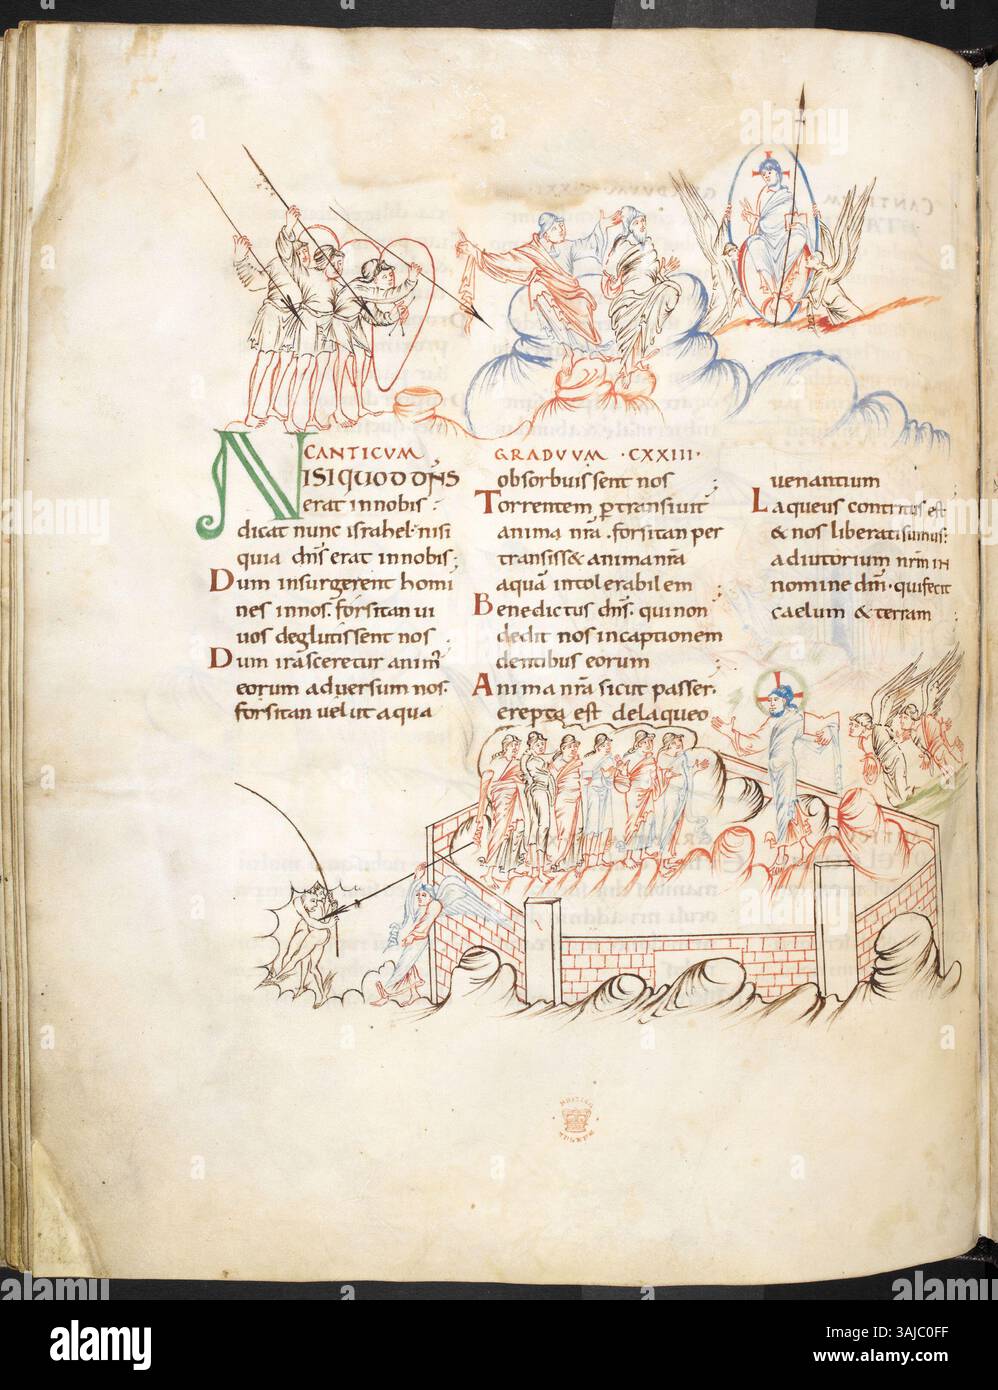 CANTICUM GRADUUM · CXXIII ·
NISI QUOD DN̄S
erat in nobis :
dicat nunc israhel · nisi
quia dn̄s erat in nobis ;
Dum insurgerent homi
nes in nos · forsitan ui
uos deglutissent nos ;
Dum irasceretur anim̄
eorum aduersum nos ·
forsitan uelut aqua
obsorbuissent nos ;
Torrentem ꝑtransiuit
anima nr̄a · forsitan per
transiss& anima nr̄a
aquā intolerabilem
Benedictus dn̄s · qui non
dedit nos in captionem
dentibus eorum
Anima nr̄a sicut passer ·
erepta est de laqueo
uenantium
Laqueus contritus est ·
& nos liberati sumus :
adiutorium nr̄m in
nomine dn̄i · qui fecit
caelum & terram
alamy
a
alamy
Image ID: 3AJC0FF
www.alamy.com